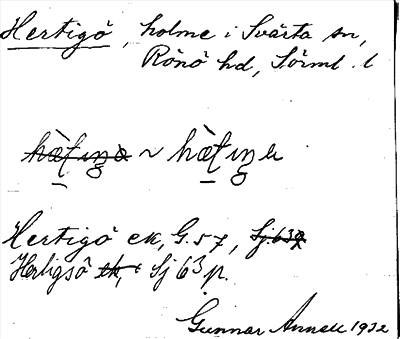 Hertigö, holme i Svärta sn,
Rönö hd, Sörml. l
Hertigö ek, G. 57, Sj 63
Hertigsö ek, Sj 63 p.
Gunnar Annell 1932